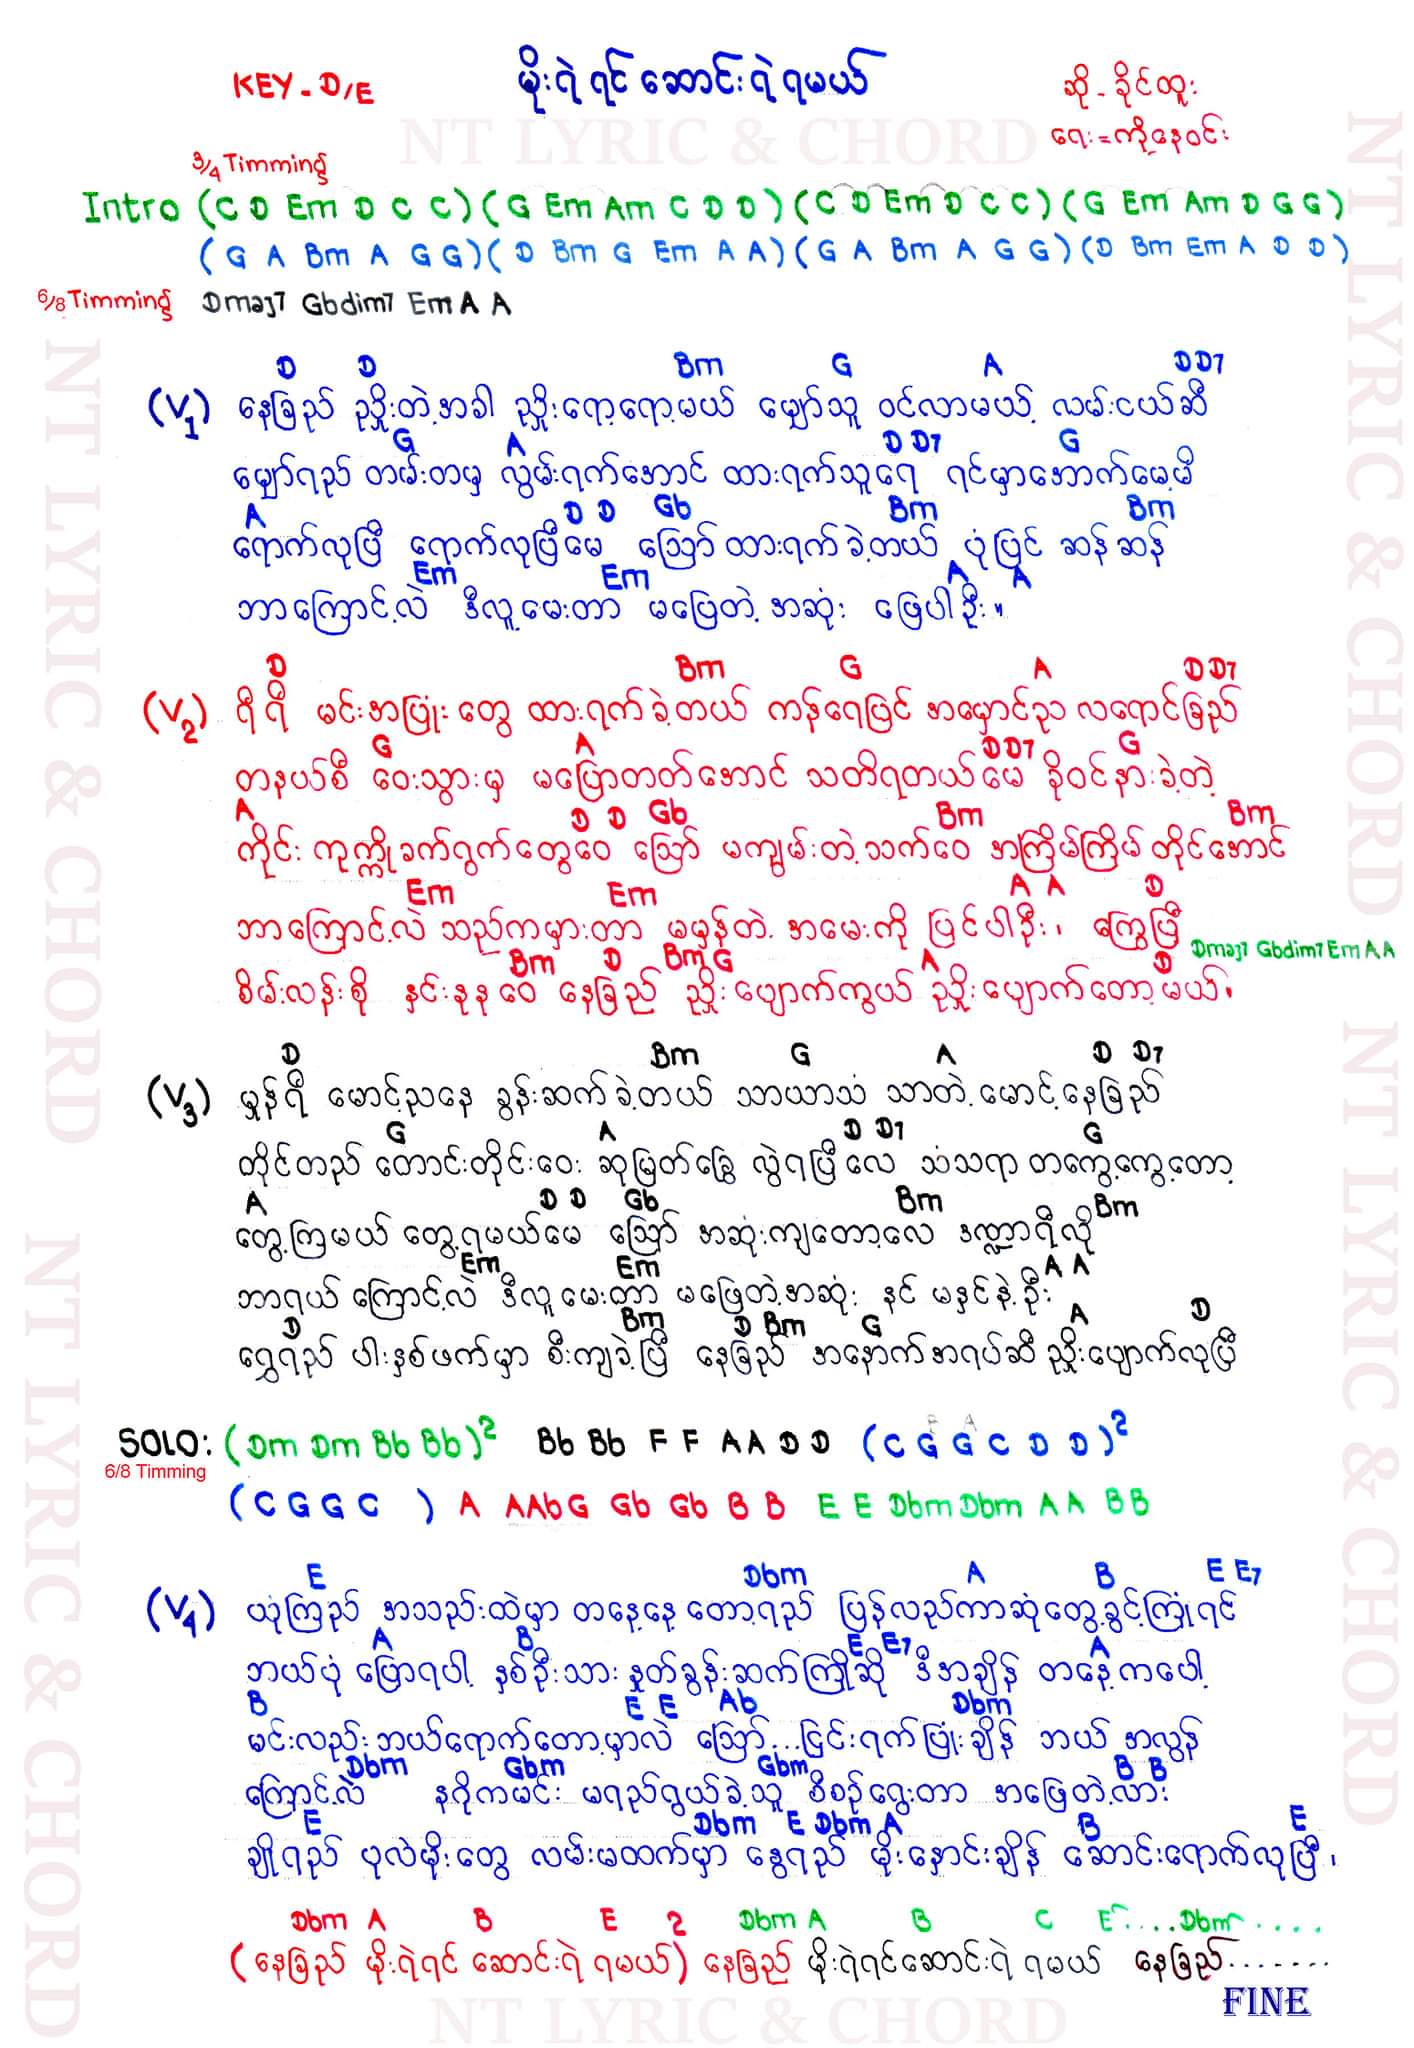 KEY - D/E
မိုးရဲရင် ဆောင်းရဲရမယ်
ဆို - ခိုင်ထူး
ရေး = ကိုနေဝင်း
NT LYRIC & CHORD
3/4 Timming
Intro (C D Em D C C) (G Em Am C D D) (C D Em D C C) (G Em Am D G G)
(G A Bm A G G) (D Bm G Em A A) (G A Bm A G G) (D Bm Em A D D)
6/8 Timming Dmaj7 Gbdim7 Em A A
D D Bm G A D D7
(V1) နေခြည် ညှိုးတဲ့အခါ ညှိုးရော့ရော့မယ် မျှော်သူ ဝင်လာမယ့် လမ်းငယ်ဆီ
G A D D7 G
မျှော်ရည် တမ်းတမှ လွမ်းရက်အောင် ထားရက်သူရေ ရင်မှာအောက်မေ့မိ
A D D Gb Bm Bm
ရောက်လုပြီ ရောက်လုပြီမေ သြော် ထားရက်ခဲ့တယ် ပုံပြင် ဆန်ဆန်
Em Em A A
ဘာကြောင့်လဲ ဒီလူမေးတာ မဖြေတဲ့အဆုံး ဖြေပါဦး။
D Bm G A D D7
(V2) ရီရီ မင်းအပြုံးတွေ ထားရက်ခဲ့တယ် ကန်ရေပြင် အမှောင်ည လရောင်ခြည်
G A D D7 G
တနယ်စီ ဝေးသွားမှ မပြောတတ်အောင် သတိရတယ်မေ ခိုဝင်နားခဲ့တဲ့
A D D Gb Bm Bm
ကိုင်း ကုက္ကိုခက်ရွက်တွေဝေ သြော် မကျွမ်းတဲ့သက်ဝေ အကြိမ်ကြိမ် တိုင်အောင်
Em Em A A D
ဘာကြောင့်လဲ သည်ကမှားတာ မမှန်တဲ့ အမေးကို ပြင်ပါဦး၊ ကြွေပြီ
Dmaj7 Gbdim7 Em A A
Bm D Bm G A D
စိမ်းလန်းစို နှင်းနုနုဝေ နေခြည် ညှိုးပျောက်ကွယ် ညှိုးပျောက်တော့မယ်၊
D Bm G A D D7
(V3) မှုန်ရီ မောင့်ညနေ ခွန်းဆက်ခဲ့တယ် သာယာသံ သာတဲ့ မောင့်နေခြည်
G A D D7 G
တိုင်တည် တောင်းတိုင်းဝေး ဆုမြတ်ခြွေ လွဲရပြီလေ သံသရာ တကွေ့ကွေ့တော့
A D D Gb Bm Bm
တွေ့ကြမယ် တွေ့ရမယ်မေ သြော် အဆုံးကျတော့လေ ဒဏ္ဍာရီလို
Em Em A A
ဘာရယ်ကြောင့်လဲ ဒီလူမေးတာ မဖြေတဲ့အဆုံး နင် မနှင်နဲ့ဦး
D Bm D Bm G A D
ရွှေရည် ပါးနှစ်ဖက်မှာ စီးကျခဲ့ပြီ နေခြည် အနောက်အရပ်ဆီ ညှိုးပျောက်လုပြီ
SOLO: (Dm Dm Bb Bb)2 Bb Bb F F A A D D (C G G C D D)2
6/8 Timming
(C G G C ) A A Ab G Gb Gb B B E E Dbm Dbm A A B B
E Dbm A B E E7
(V4) ယုံကြည် အသည်းထဲမှာ တနေ့နေ့တော့ရည် ပြန်လည်ကာဆုံတွေ့ခွင့်ကြုံရင်
A B E E7 A
ဘယ်ပုံ ပြောရပါ့ နှစ်ဦးသား နှုတ်ခွန်းဆက်ကြိုဆို ဒီအချိန် တနေ့ကပေါ့
B E E Ab Dbm
မင်းလည်းဘယ်ရောက်တော့မှာလဲ သြော်...ငြင်းရက်ပြုံးချိန် ဘယ် အလွန်
Dbm Gbm Gbm B B
ကြောင့်လဲ နဂိုကမင်း မရည်ရွယ်ခဲ့သူ စိစဉ်ရွေးတာ အဖြေတဲ့လား
E Dbm E Dbm A B E
ချိုရည် ပုလဲမိုးတွေ လမ်းမထက်မှာ နွေရည် မိုးနှောင်းချိန် ဆောင်းရောက်လုပြီ၊
Dbm A B E 2 Dbm A B C E.... Dbm ....
(နေခြည် မိုးရဲရင် ဆောင်းရဲ ရမယ်) နေခြည် မိုးရဲရင်ဆောင်းရဲ ရမယ် နေခြည်.......
FINE
NT LYRIC & CHORD
NT LYRIC & CHORD
NT LYRIC & CHORD
NT LYRIC & CHORD
NT LYRIC & CHORD